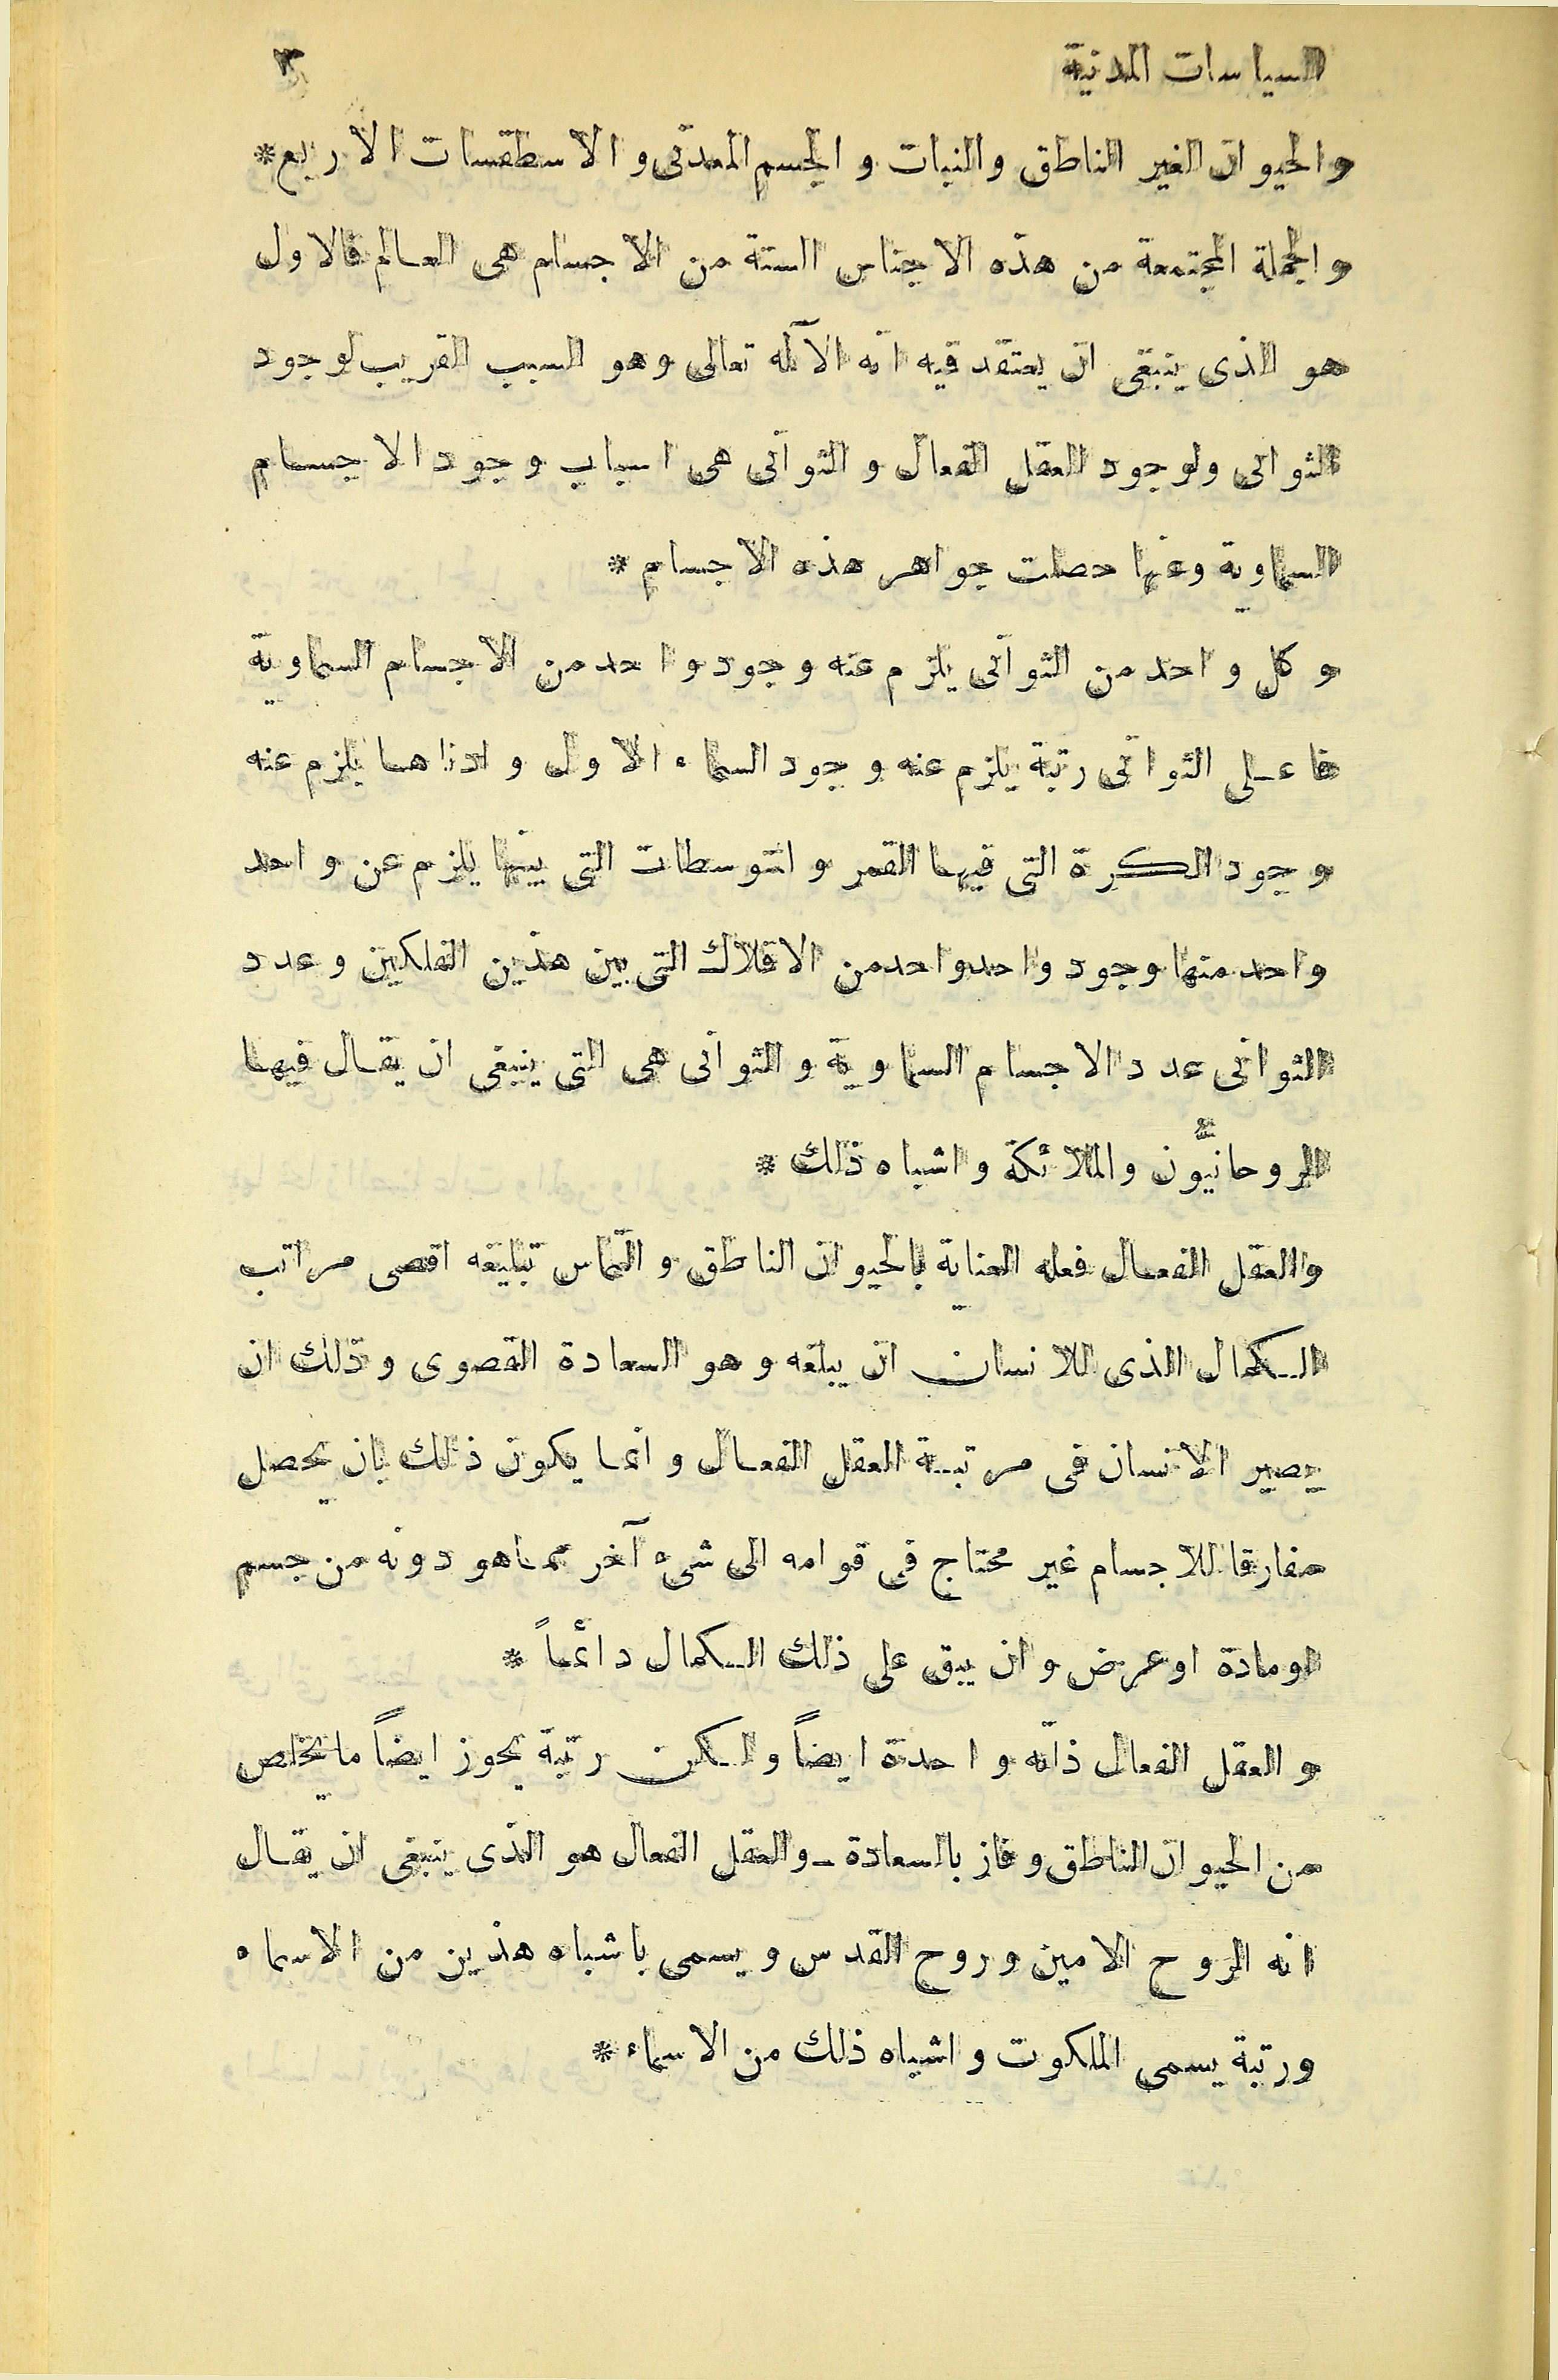 السياسات المدنية ٣
والحيوان الغير الناطق والنبات والجسم المعدنى والاسطقسات الاربع*
والجملة المجتمعة من هذه الاجناس الستة من الاجسام هى العالم فالاول
هو الذى ينبغى ان يعتقد فيه انه الآله تعالى وهو السبب القريب لوجود
الثوانى ولوجود العقل الفعال والثوانى هى اسباب وجود الاجسام
السماوية وعنها حصلت جواهر هذه الاجسام *
وكل واحد من الثوانى يلزم عنه وجود واحد من الاجسام السماوية
فاعلى الثوانى رتبة يلزم عنه وجود السماء الاول وادناها يلزم عنه
وجود الكرة التى فيها القمر والمتوسطات التى بينها يلزم عن واحد
واحد منها وجود واحد واحد من الافلاك التى بين هذين الفلكين وعدد
الثوانى عدد الاجسام السماوية والثوانى هى التى ينبغى ان يقال فيها
الروحانيُّون والملائكة واشباه ذلك *
والعقل الفعال فعله العناية بالحيوان الناطق والتماس تبليغه اقصى مراتب
الكمال الذى للانسان ان يبلغه وهو السعادة القصوى وذلك ان
يصير الانسان فى مرتبة العقل الفعال وانما يكون ذلك بان يحصل
مفارقا للاجسام غير محتاج فى قوامه الى شىء آخر مما هو دونه من جسم
او مادة او عرض وان يبقى على ذلك الكمال دائماً *
والعقل الفعال ذاته واحدة ايضاً ولكن رتبة يحوز ايضاً ما يخلص
من الحيوان الناطق وفاز بالسعادة ـ والعقل الفعال هو الذى ينبغى ان يقال
انه الروح الامين وروح القدس ويسمى باشباه هذين من الاسماء
ورتبة يسمى الملكوت واشباه ذلك من الاسماء *